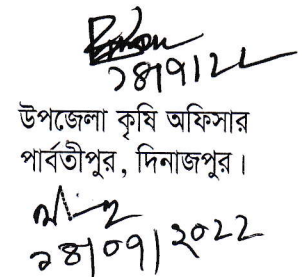 ২৪/৭/২২
উপজেলা কৃষি অফিসার
পার্বতীপুর, দিনাজপুর।
২৪/০৭/২০২২